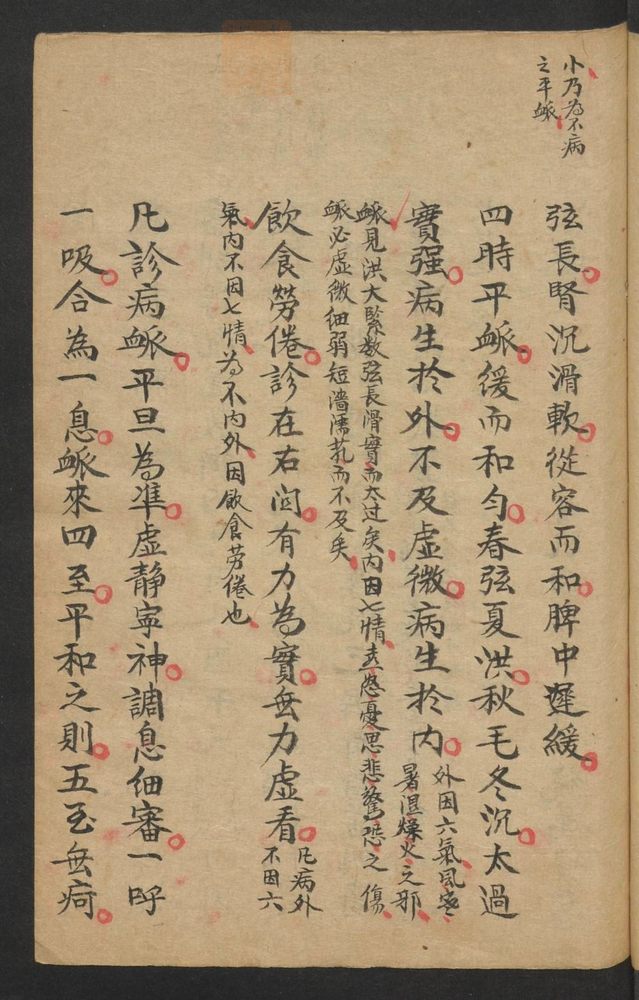 小乃為不病
之平脈
弦長腎沉滑軟從容而和脾中遲緩
四時平脈緩而和勻春弦夏洪秋毛冬沉太過
實强病生於外不及虛微病生於内
外因六氣風寒
暑濕燥火之邪
脈見洪大緊数弦長滑實而太过矣内因七情喜怒憂思悲驚恐之傷
脈必虛微细弱短濇濡芤而不及矣
飲食勞倦診在右関有力為實無力虛看
凡病外
不因六
氣内不因七情為不内外因飲食劳倦也
凡診病脈平旦為準虛静寧神調息细審一呼
一吸合為一息脈來四至平和之則五至無疴